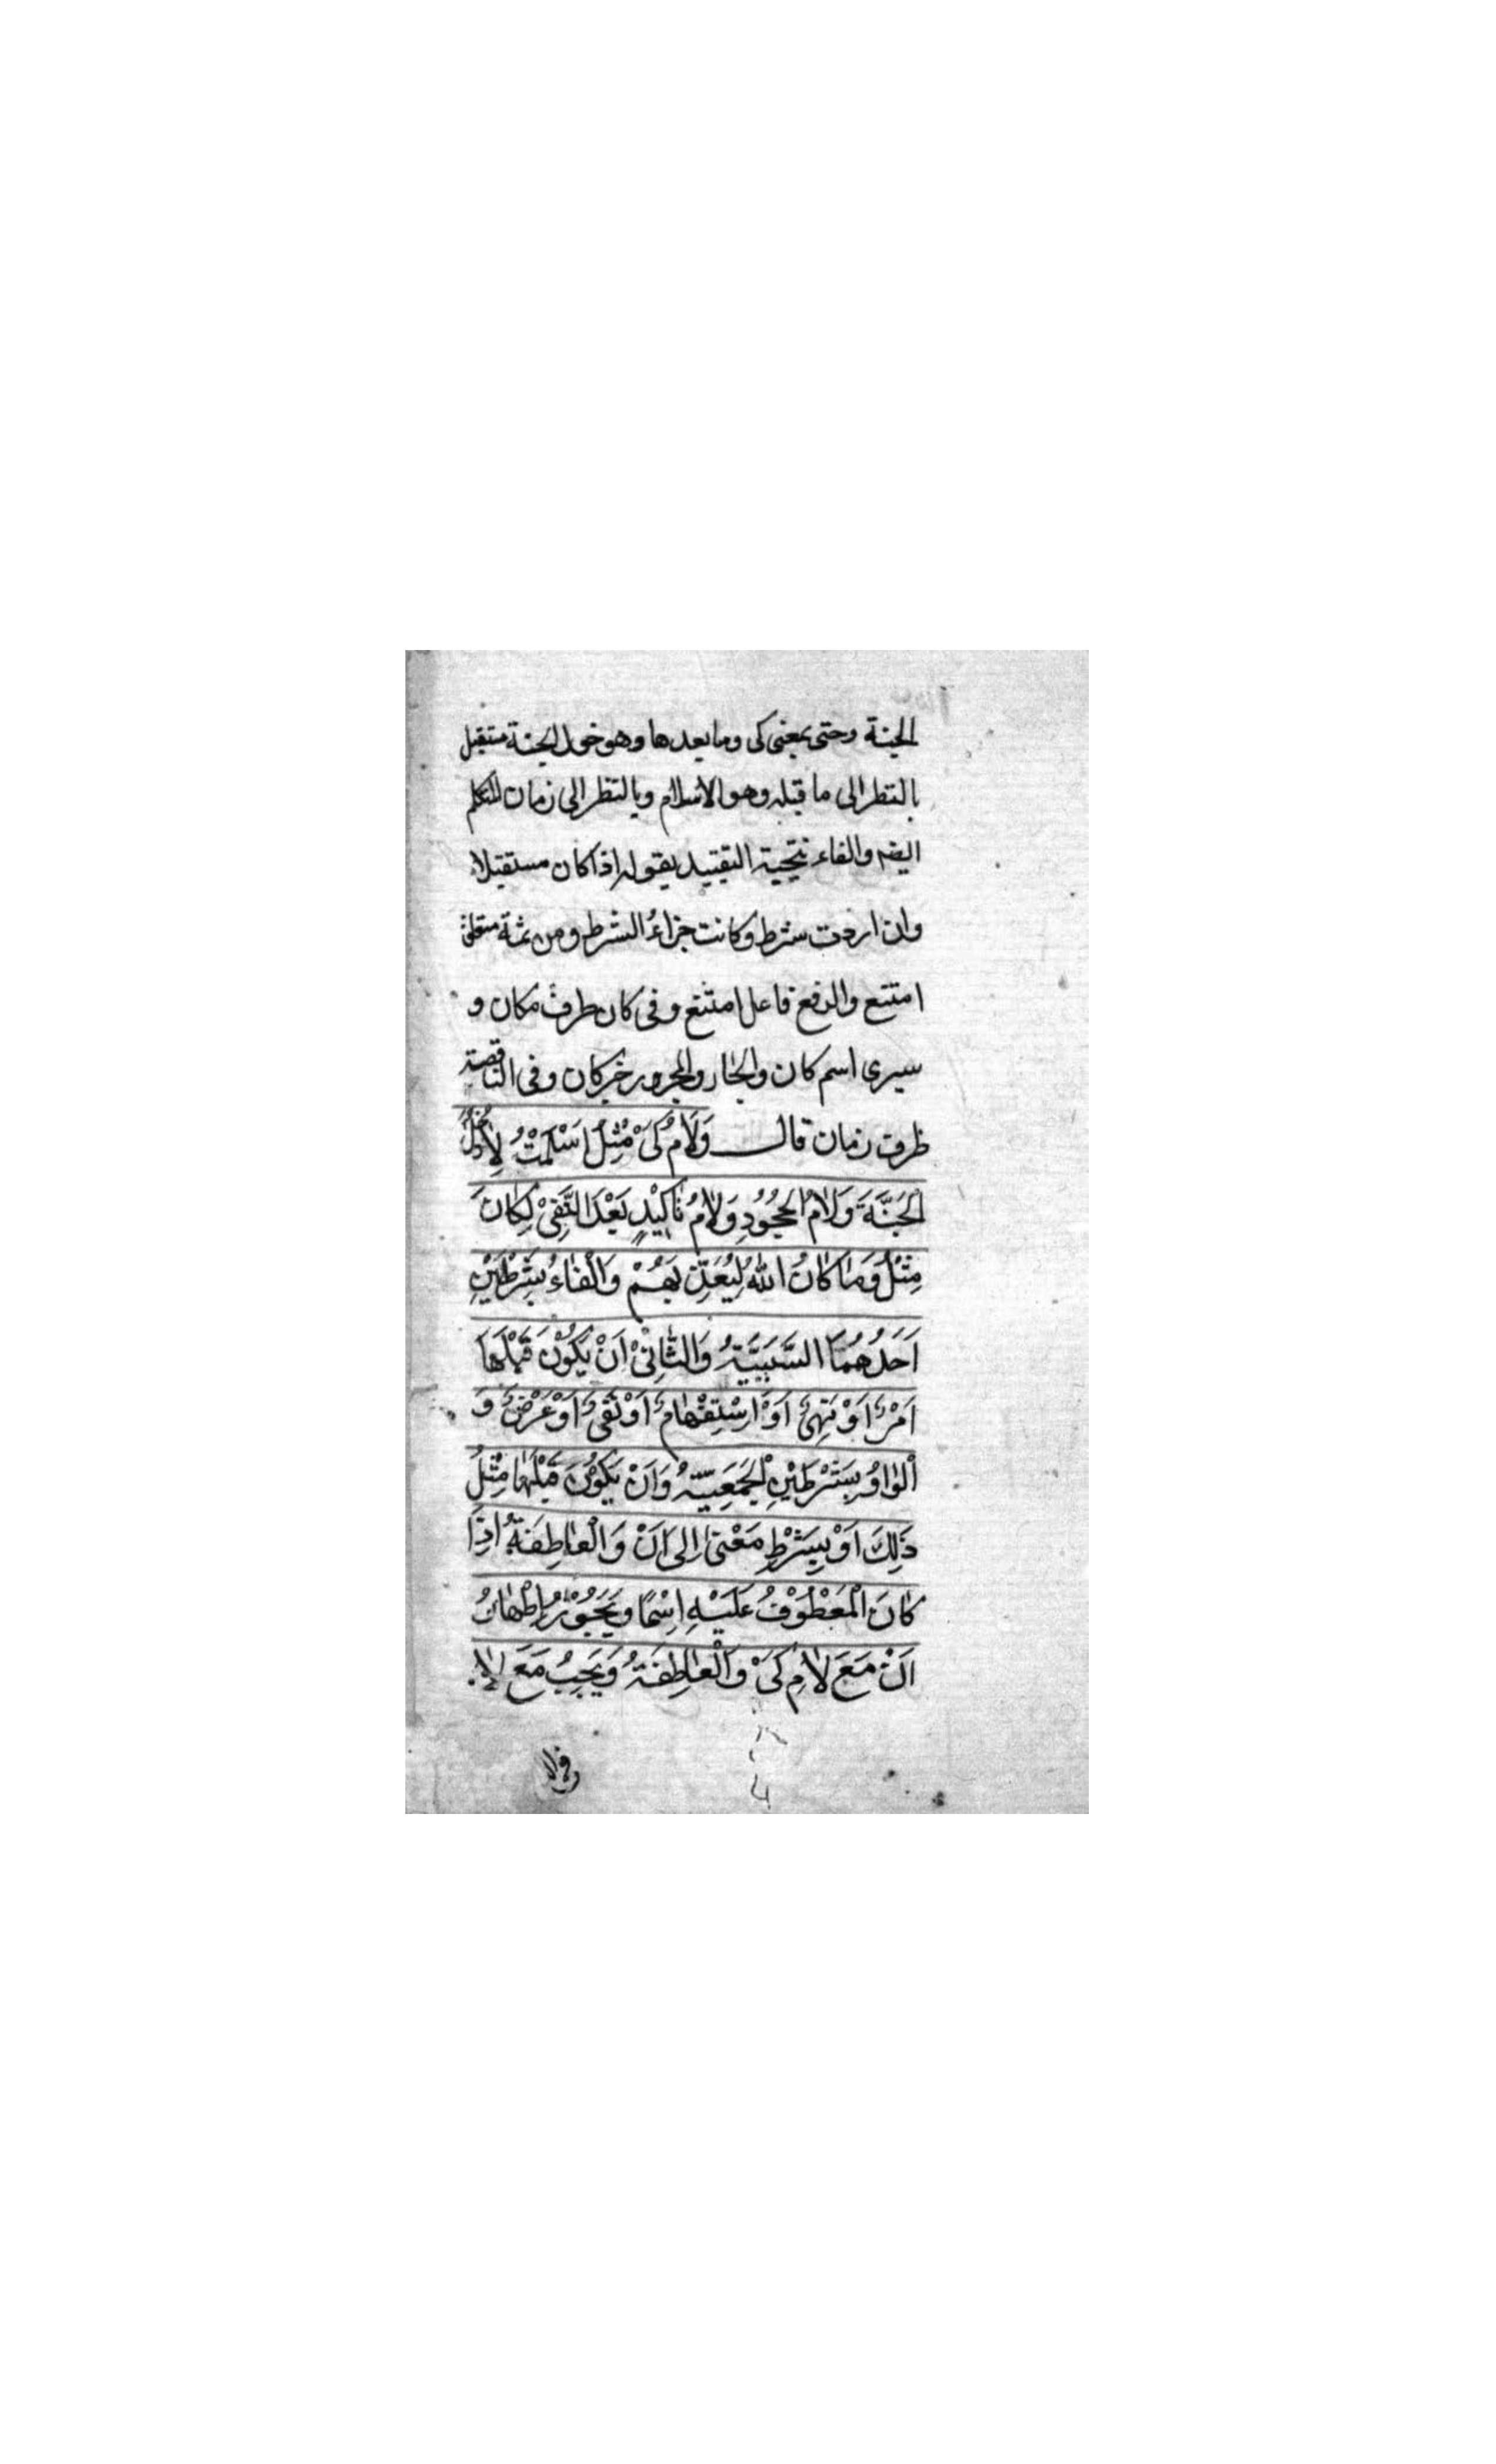 الجنة وحتى بمعنى كى وما بعدها وهو دخول الجنة مستقبل
بالنظر الى ما قبله وهو الاسلام وبالنظر الى زمان التكلم
ايضا والفاء نتيجية التقييد بقوله اذا كان مستقبلا
وان اردت شرط وكانت جزاء الشرط ومن ثمة متعلق
امتنع والرفع فاعل امتنع وفى كان ظرف مكان و
سيرى اسم كان والجار والمجرور خبر كان وفى الناقصة
ظرف زمان قال وَلَامُ كَىْ مِثْلُ اَسْلَمْتُ لِاَدْخُلَ
الْجَنَّةَ وَلَامُ الْجُحُوْدِ وَلَامُ تَاكِيْدٍ بَعْدَ النَّفِىْ لِكَانَ
مِثْلُ وَمَا كَانَ اللهُ لِيُعَذِّبَهُمْ وَالْفَاءُ بِشَرْطَيْنِ
اَحَدُهُمَا السَّبَبِيَّةُ وَالثَّانِىْ اَنْ يَكُوْنَ قَبْلَهَا
اَمْرٌ اَوْ نَهِىٌ اَوْ اِسْتِفْهَامٌ اَوْ نَفِىٌ اَوْ عَرْضٌ وَ
الْوَاوُ بِشَرْطَيْنِ الْجَمْعِيَّةُ وَاَنْ يَكُوْنَ قَبْلَهَا مِثْلُ
ذَلِكَ اَوْ بِشَرْطِ مَعْنَى اِلَى اَنْ وَالْعَاطِفَةُ اِذَا
كَانَ الْمَعْطُوْفُ عَلَيْهِ اِسْمًا وَيَجُوْزُ اِظْهَارُ
اَنْ مَعَ لَامِ كَىْ وَالْعَاطِفَةُ وَيَجِبُ مَعَ لا